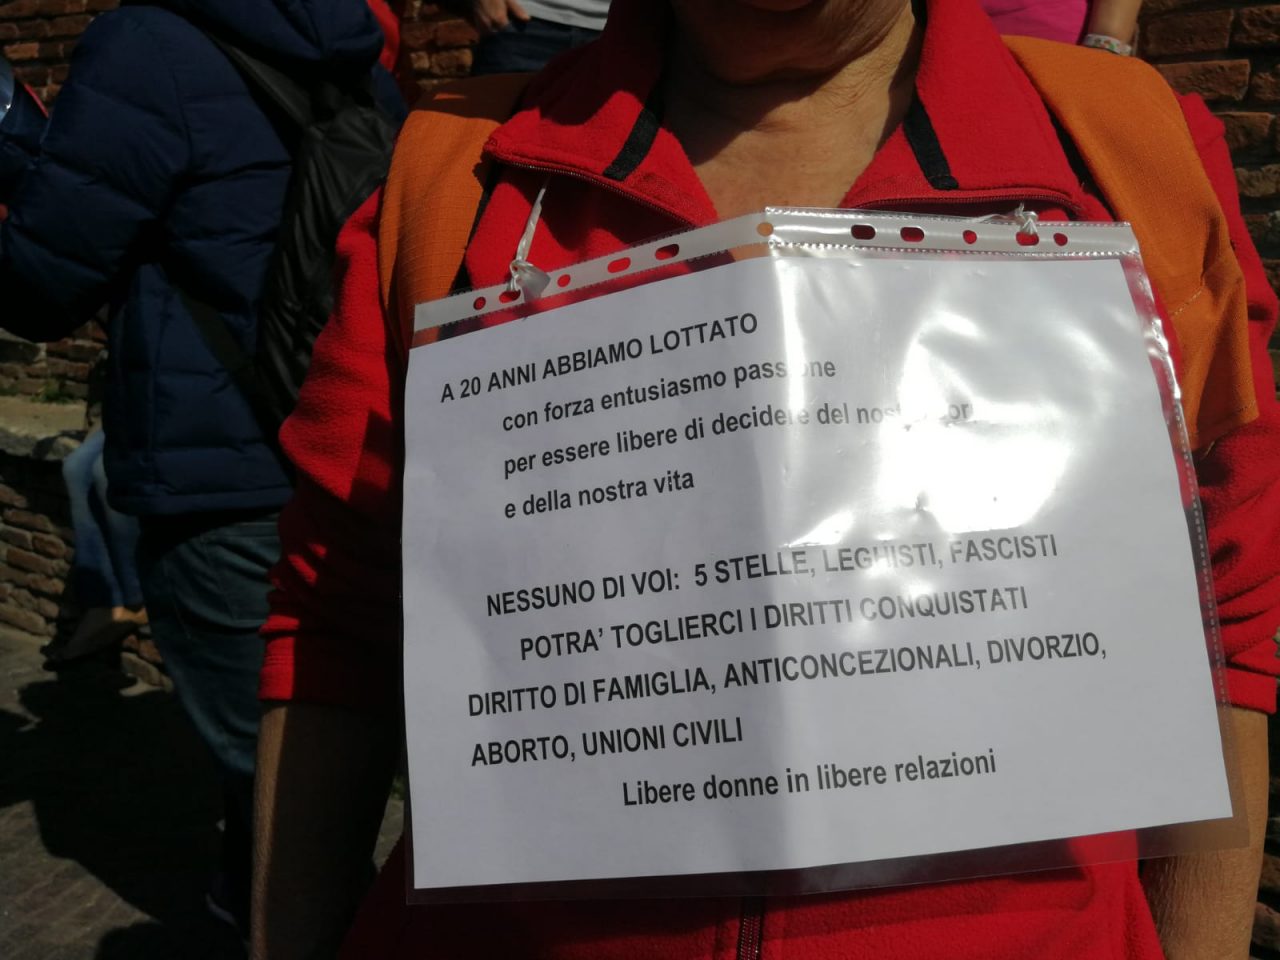 A 20 ANNI ABBIAMO LOTTATO
con forza entusiasmo passione
per essere libere di decidere del nostro
e della nostra vita
NESSUNO DI VOI: 5 STELLE, LEGHISTI, FASCISTI
POTRA’ TOGLIERCI I DIRITTI CONQUISTATI
DIRITTO DI FAMIGLIA, ANTICONCEZIONALI, DIVORZIO,
ABORTO, UNIONI CIVILI
Libere donne in libere relazioni